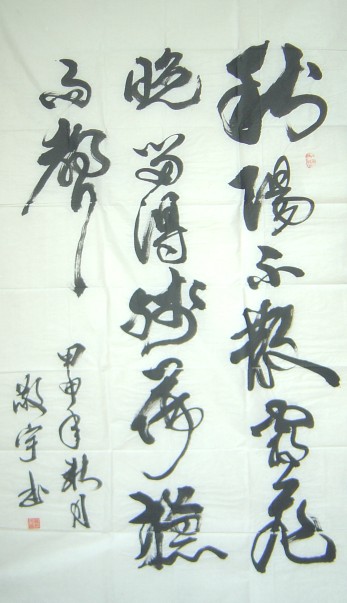 秋陽不散霜飛
晚留得殘荷聽
雨聲
甲申年秋月
敬宇书